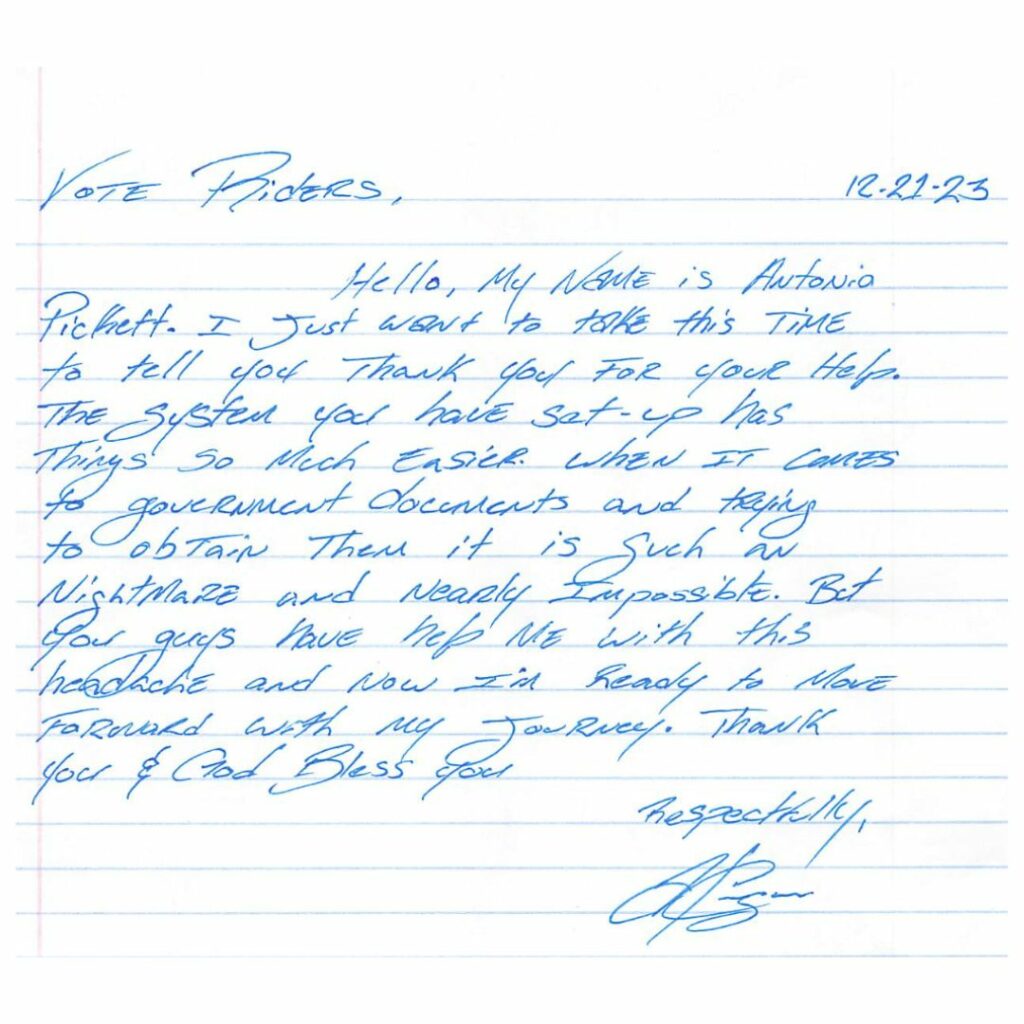 Vote Riders,
12-21-23
Hello, My Name is Antonio
Pickett. I Just want to take this Time
to tell you Thank you For your Help.
The System you have set-up has
Things so Much Easier. When It comes
to government documents and trying
to obtain Them it is such an
Nightmare and nearly Impossible. But
you guys have help Me with this
headache and now I'm Ready to Move
Forward with my Journey. Thank
you & God Bless you
Respectfully,